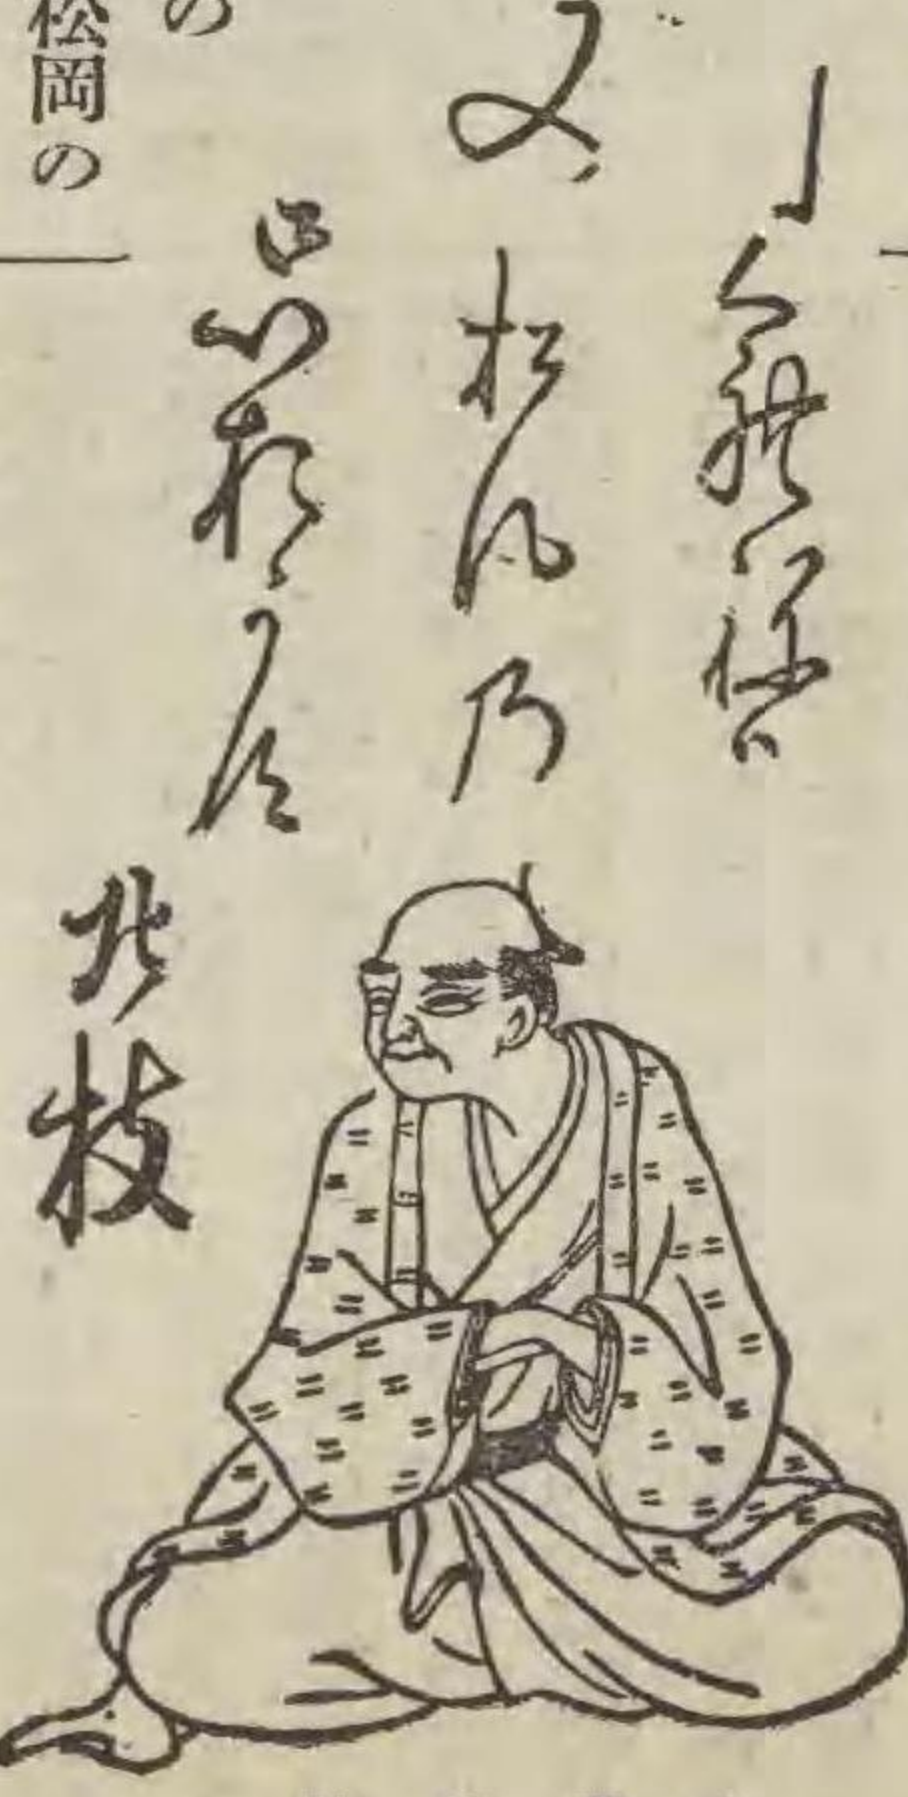 しくれねは
又松風乃
只おかす
北枝
の
松岡の